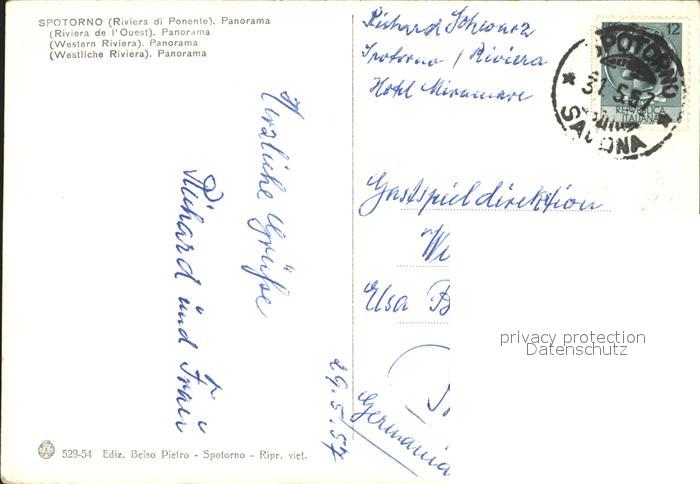 SPOTORNO (Riviera di Ponente). Panorama
(Riviera de l'Ouest). Panorama
(Western Riviera). Panorama
(Westliche Riviera). Panorama
Herzliche Grüße
Richard und Frau
29.5.57
529-54 Ediz. Belso Pietro - Spotorno - Ripr. viet.
Richard Schwarz
Spotorno / Riviera
Hotel Miramare
12
REPUBBLICA
ITALIANA
SPOTORNO
31.5.57
SAVONA
Gastspieldirektion
Wi
Elsa B
Germania
privacy protection
Datenschutz